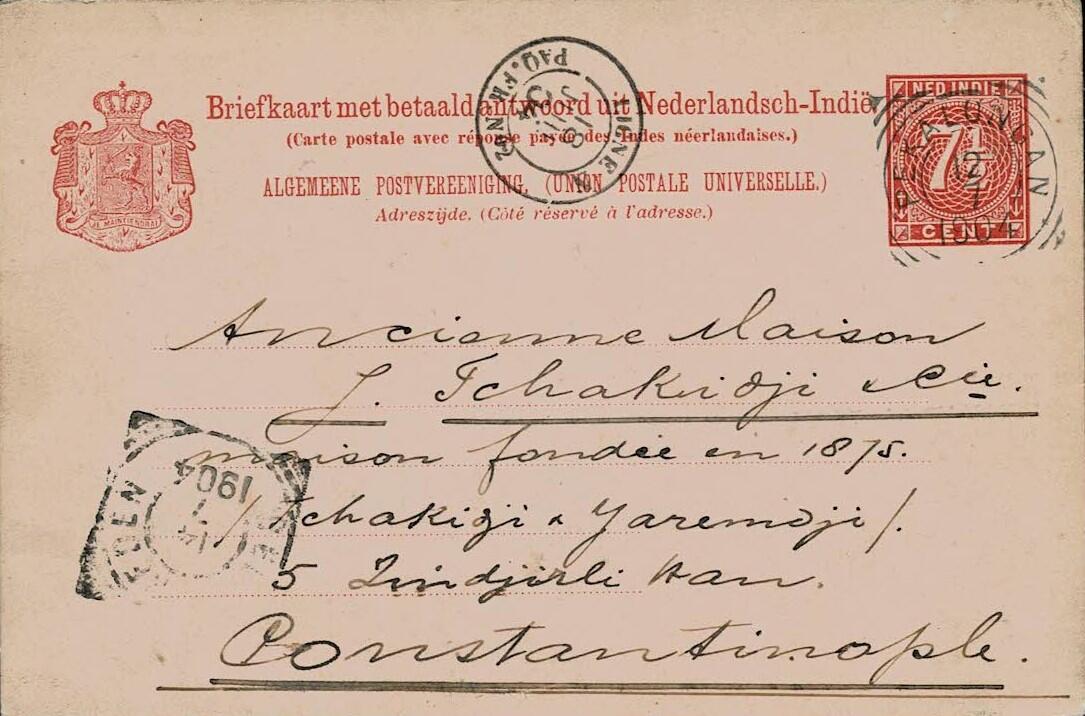 Briefkaart met betaald antwoord uit Nederlandsch-Indië
(Carte postale avec réponse payée des Indes néerlandaises.)
ALGEMEENE POSTVEREENIGING, (UNION POSTALE UNIVERSELLE.)
Adreszijde. (Côté réservé à l'adresse.)
JE MAINTIENDRAI
NED.INDIE
7½
CENT
PEKALONGAN
12
7
1904
LIGNE N
PAQ. FR.
1904
14
7
Ancienne Maison
J. Tchakidji & Cie.
maison fondée en 1875.
/Tchakigi & Yaremdji/.
5 Zindjirli Han.
Constantinople.